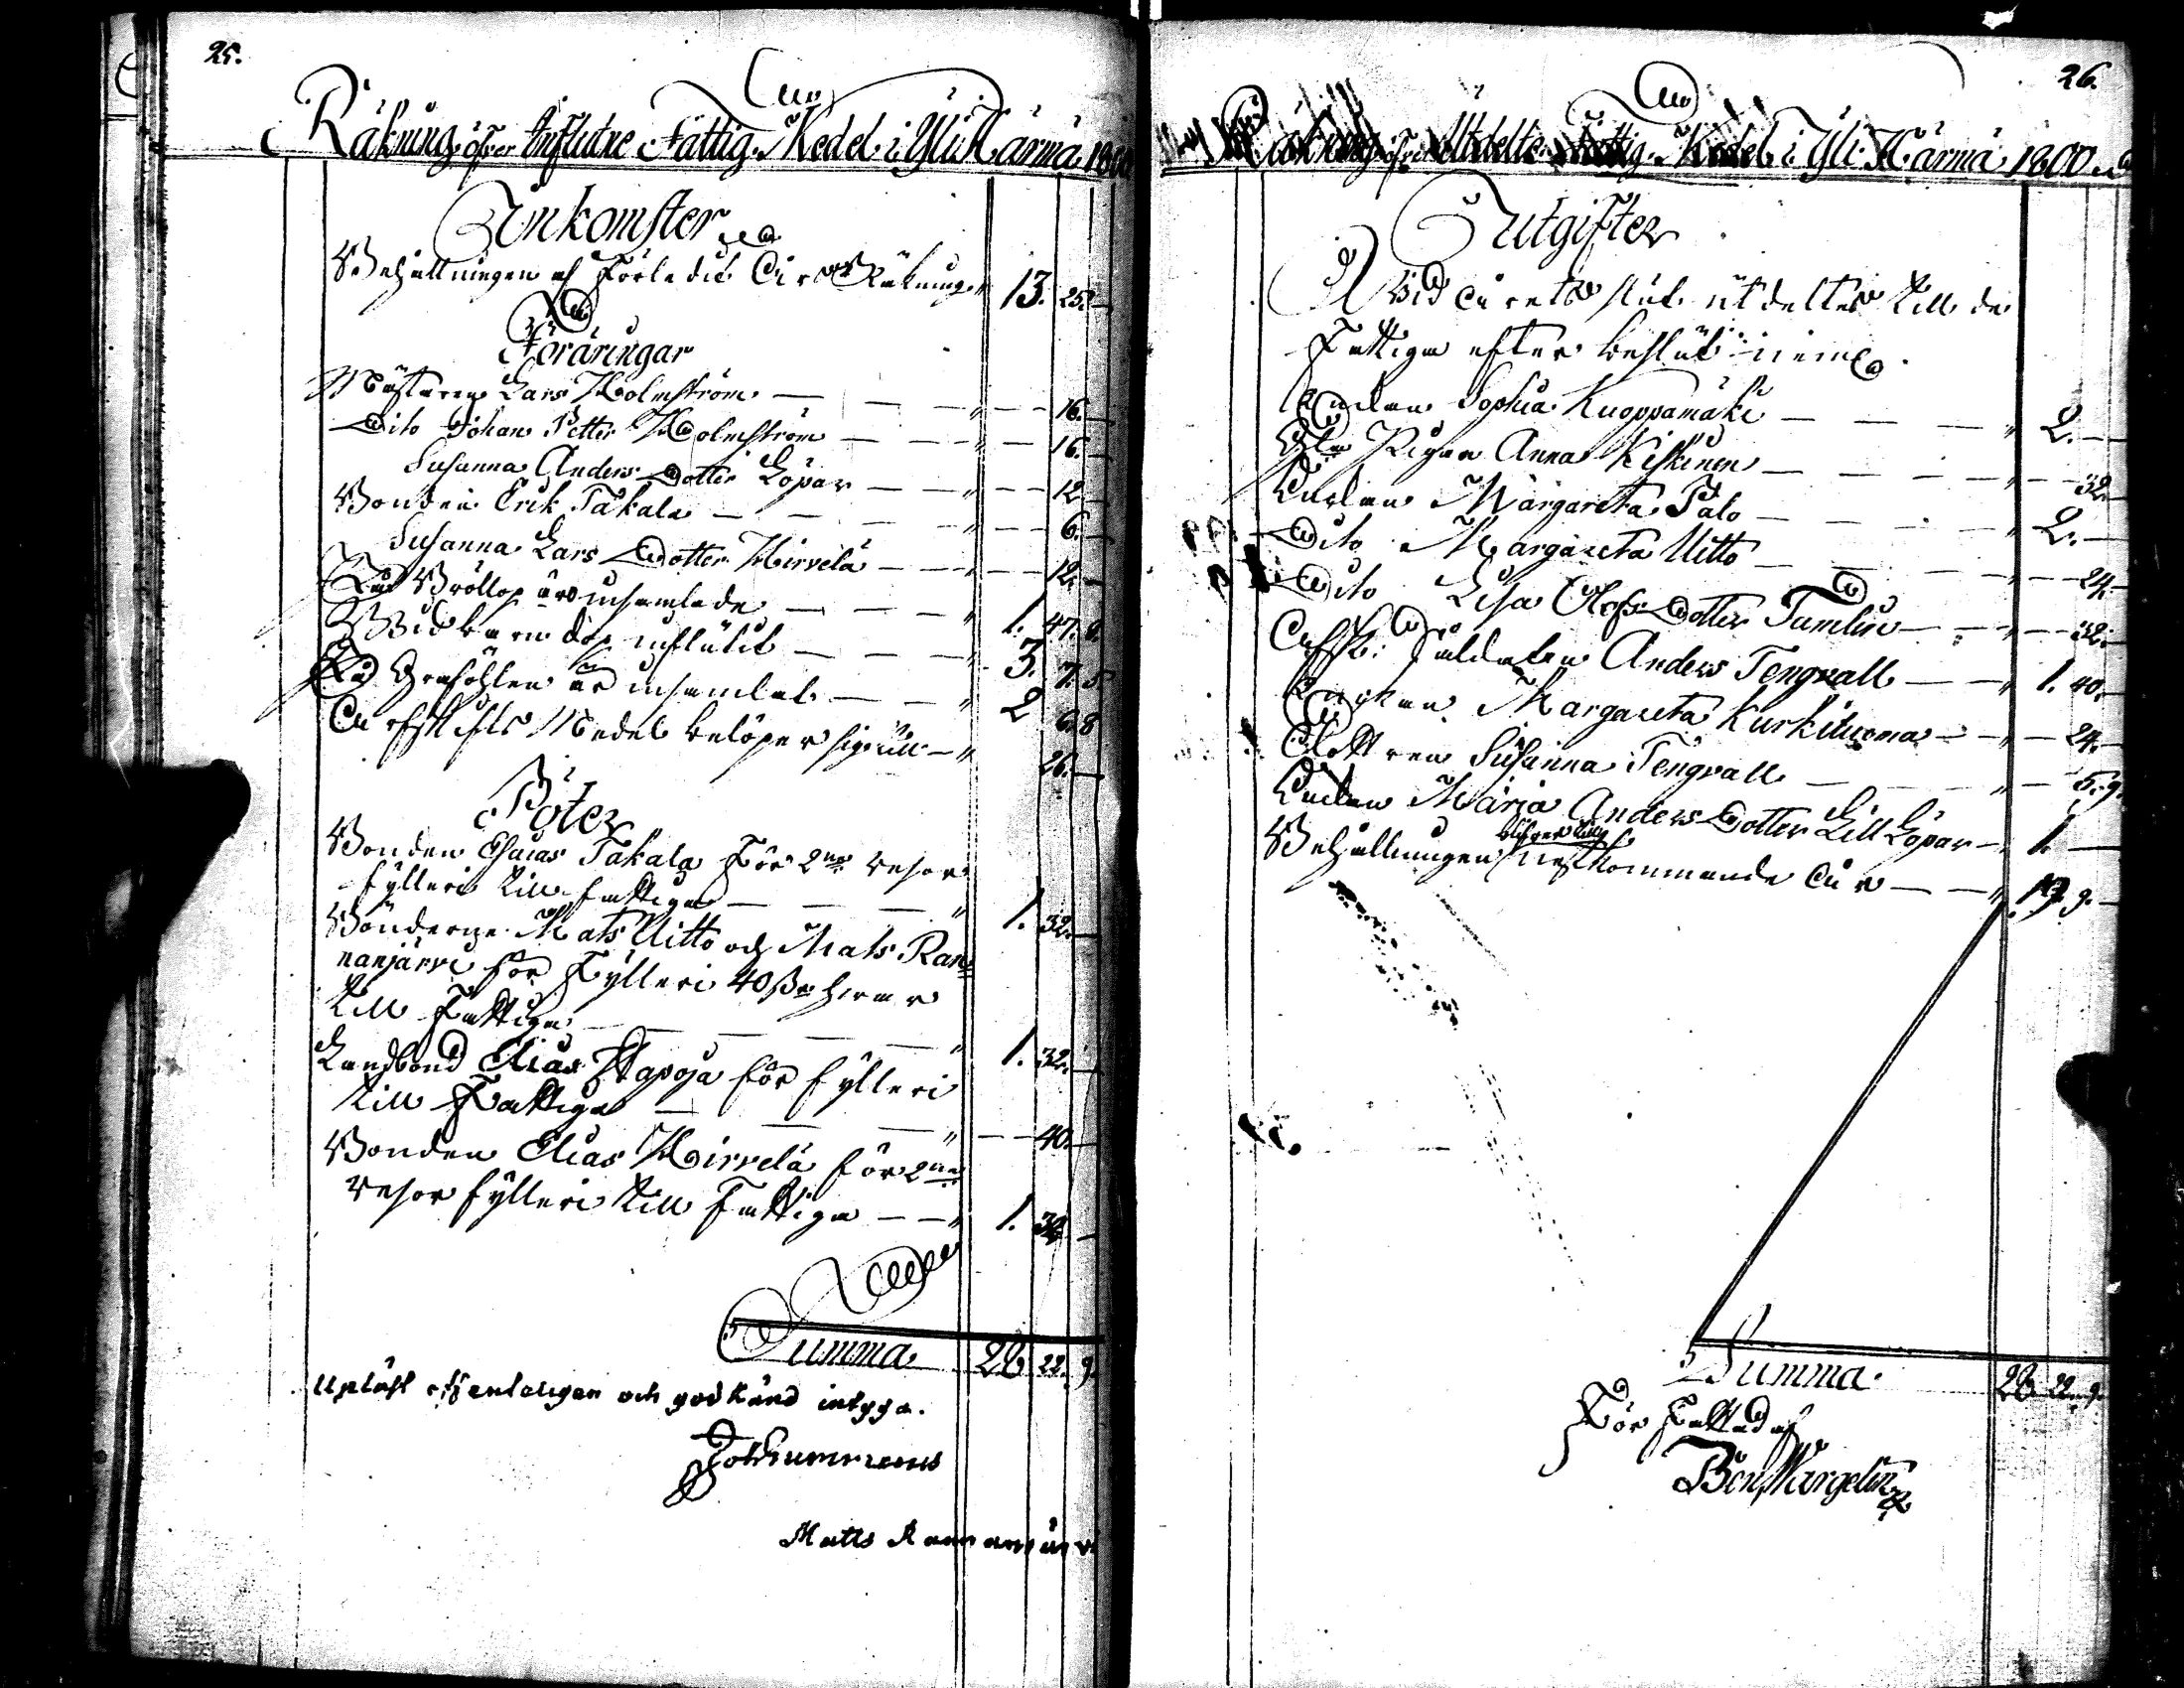 25.
Räkning öfver Influtne Fattig Medel i Yli Härmä 1800
Inkomster
Behållningen af förledit Års Räkning 13. 25. —
Föräringar
Mästaren Lars Holmström — — — 16. —
Dito Johan Petter Holmström — — — 16. —
Susanna Anders Dotter Löpar — — — 12 —
Bonden Erik Takala — — — 6. —
Susanna Lars Dotter Hirvelä — — — 12. —
På Bröllop är insamlade — — — 1. 47. 8.
Wid barn dop influtit — — — 3. 7. 5
På Grafölen är insamlat — — 2 6. 8
Medel belöper sig till — 26. —
Böter
Bonden Esaias Takala för 2ne resor
fylleri till fattiga — — — 1. 32. —
Bönderne Mats Uitto och Mats Ran=
nanjärvi för Fylleri 40 s. hvar
till Fattiga — — — 1. 32. —
Landbond Elias Hapoja för fylleri
till Fattiga — — — 40. —
Bonden Elias Hirvelä för 2ne
resor fylleri till Fattiga — — 1. 32 —
Summa 28 22. 9.
Upläst offenteligen och godkänd intyga.
Matts Rannanjärvi
26.
Utdelte Fattig Medel i Yli Härmä 1800
Utgifter
Wid årets slut utdeltes till de
Fattiga efter beslut neml.
Enkan Sophia Kuoppamäki — — — 2. —
Gla Pigan Anna Kiskinen — — — 32. —
Enkan Margareta Palo — — — 2. —
Dito Margareta Uitto — — — 24. —
Dito Lisa Olofs Dotter Tamlin — — 32. —
Afsk: Soldaten Anders Tengvall — — 1. 40. —
Enkan Margareta Kurkiluoma — — 24. —
Dottren Susanna Tengvall — — 5. 9.
Enkan Maria Anders Dotter Lill Löpar — 1. —
Behållningen blifver till nestkommande år — — 19. 9. —
Summa. 28 22. 9.
Författad af
Ben Wargelin